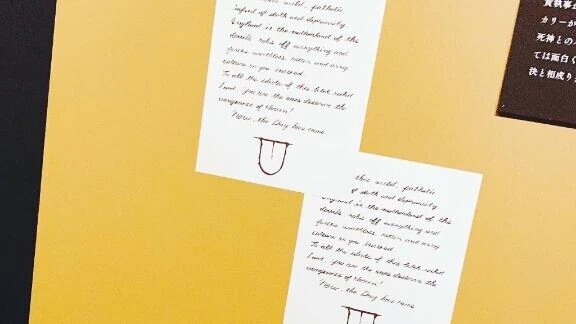 this wild, pathetic
infant of sloth and depravity.
England is the motherland of the
devils robs off everything and
gives worthless, rotten and
culture in you instead.
To all the idiots of this
Land, you are the ones deserve the
vengeance of Heaven!
Now, the Day has come
this wild, pathetic
of sloth and depravity.
England is the motherland of the
devils robs off everything and
gives worthless, rotten and
culture in you instead.
To all the idiots of this
Land, you are the ones deserve the
vengeance of Heaven!
Now, the Day has come
貴執事
カリーが
死神との
ては面白く
決と相成り